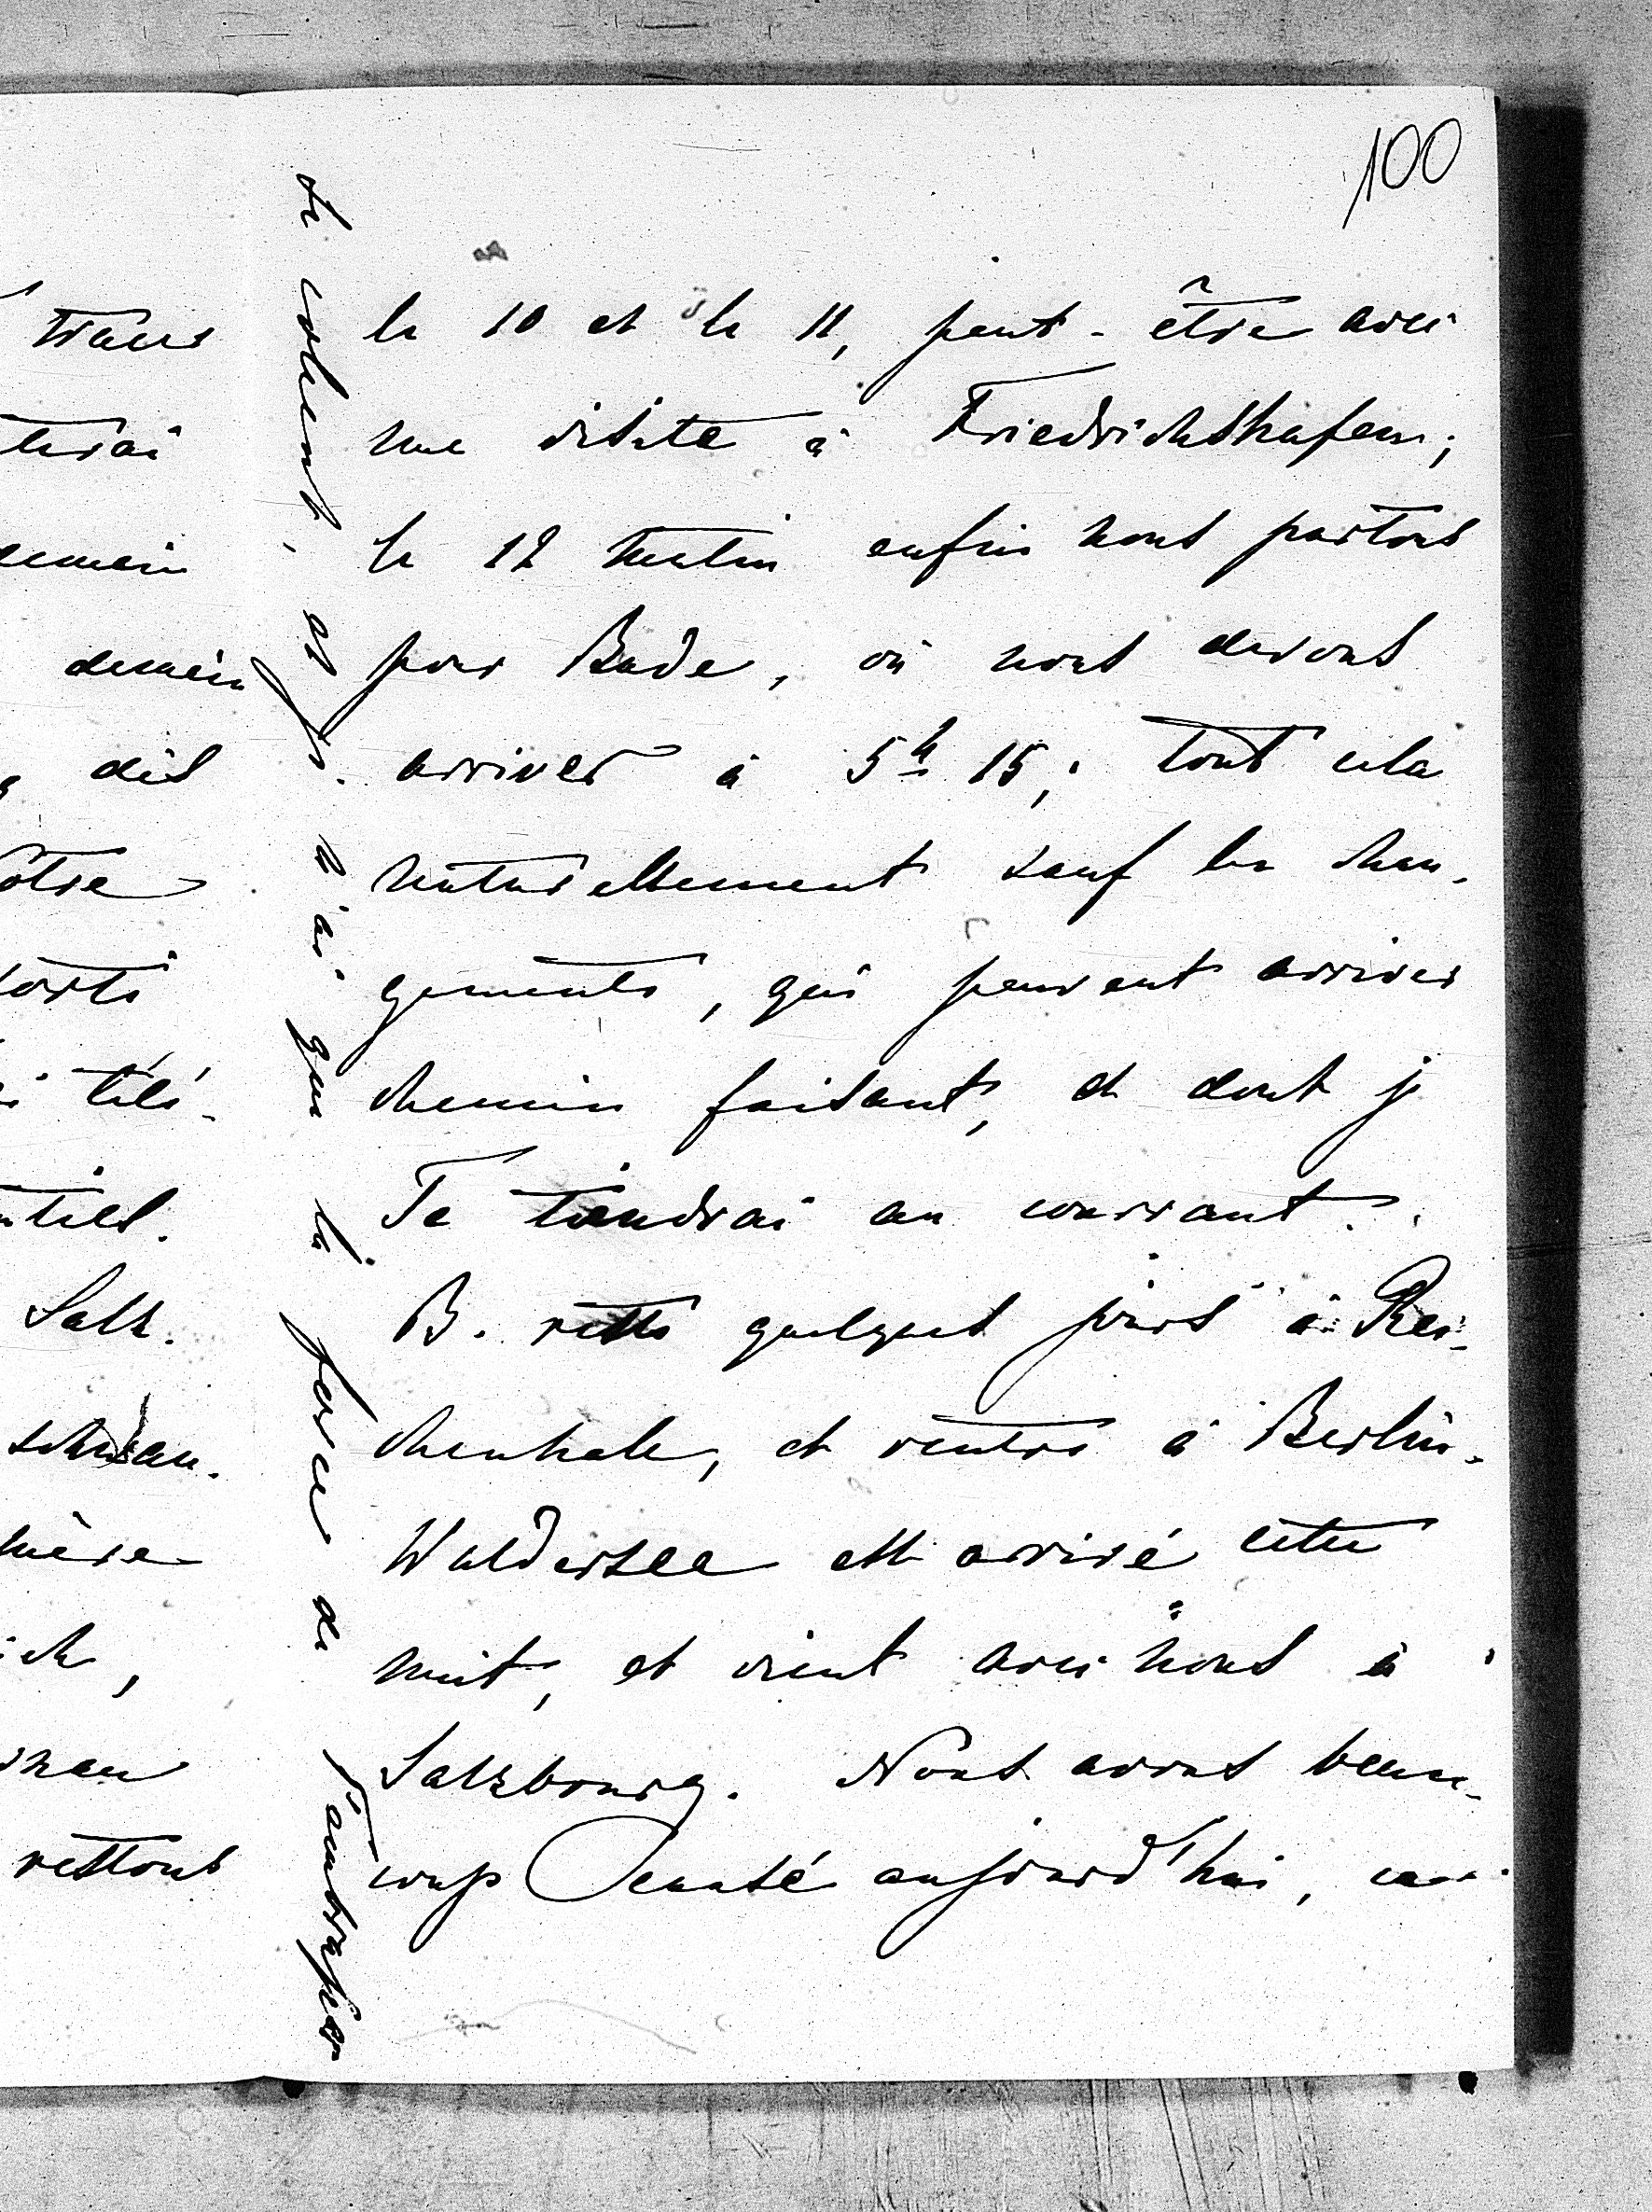 100
le 10 et le 11, peut-être avec
une visite à Friedrichshafen;
le 12 matin enfin nous partons
pour Bade, où nous devons
arriver à 5h 15; tout cela
naturellement sauf les chan-
gements, qui peuvent arriver
chemin faisant, et dont je
Te tiendrai au courant.
B. reste quelques jours à Rei-
chenhale, et rentre à Berlin.
Waldersee est arrivé cette
nuit, et vient avec nous à
Salzbourg. Nous avons beau-
coup pensé aujourd'hui,
volent, et je n'ai que la force de T'embrasser
trans
terai
demain
demain
dis
Votre
sorti
télé-
Salz.
mère
restons